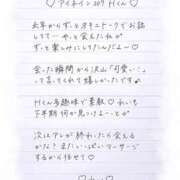 ♡ アイネイン 207 Hくん ♡
去年からずっとオキニトークでお話
してて…やっと会えたねが
ずっと楽しみにしてたんだよ〜♡
会った瞬間から沢山「可愛い!」
って言ってくれて嬉しかったです♪
Hくん多趣味で素敵♡ れいも
下半期何か見つけよ〜っと
次はアレが終わったら会える
かな? またいっぱいマッサージ
するから任せて♡